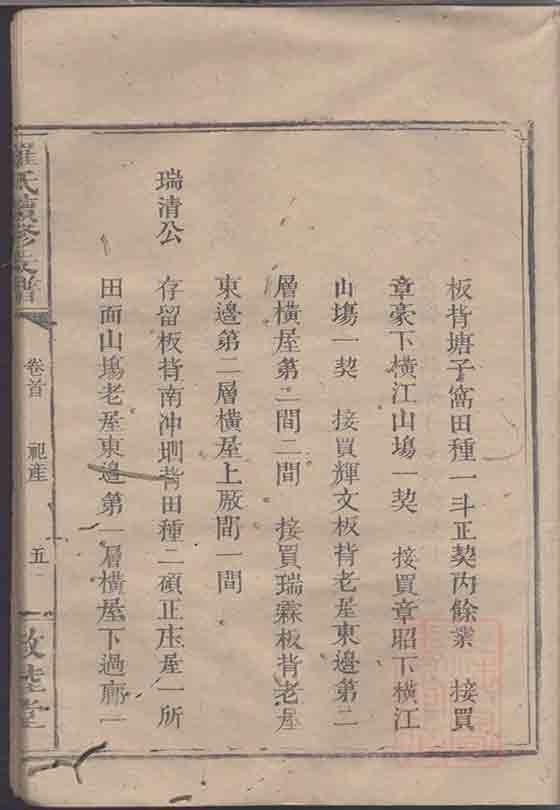 板背塘子窩田種一斗正契內餘業　接買
章豪下橫江山塲一契　接買章昭下橫江
山塲一契　接買輝文板背老屋東邊第二
層橫屋第二間二間　接買瑞霖板背老屋
東邊第二層橫屋上厫間一間
瑞清公　存留板背南冲圳背田種二碩正庄屋一所
田面山塲老屋東邊第一層橫屋下過廊一
羅氏續修支譜
卷首　祀產　五
敦睦堂